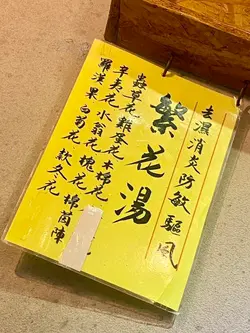 去濕消炎防敏驅風
繁花湯
蟲草花雞蛋花木棉花
辛夷花水翁花槐花
羅漢果白菊花款冬花棉茵陳